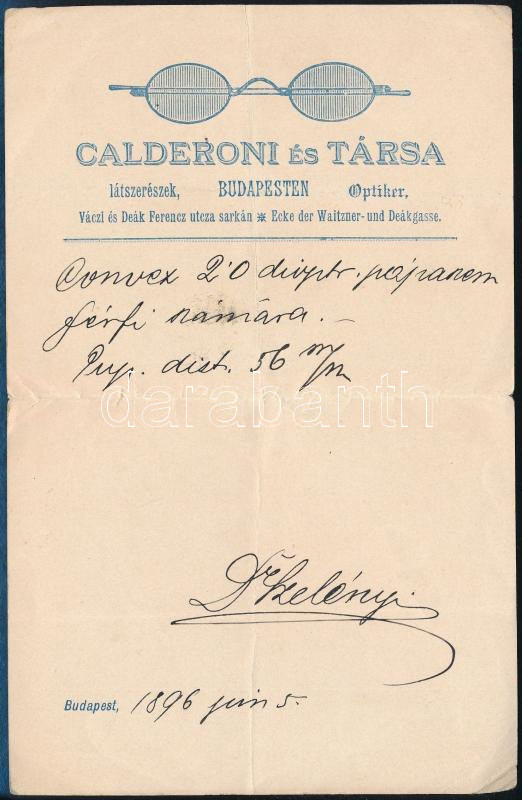 CALDERONI ÉS TÁRSA
látszerészek, BUDAPESTEN Optiker,
Váczi és Deák Ferencz utcza sarkán ⁕ Ecke der Waitzner- und Deákgasse.
Convex 2·0 dioptr. pápaszem
férfi számára. –
Pup. dist. 56 m/m
darabanth
Dr Szelényi
Budapest, 1896 jun 5.